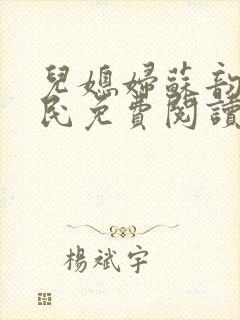 兒媳婦蘇韵
民免費閱讀
楊斌宇